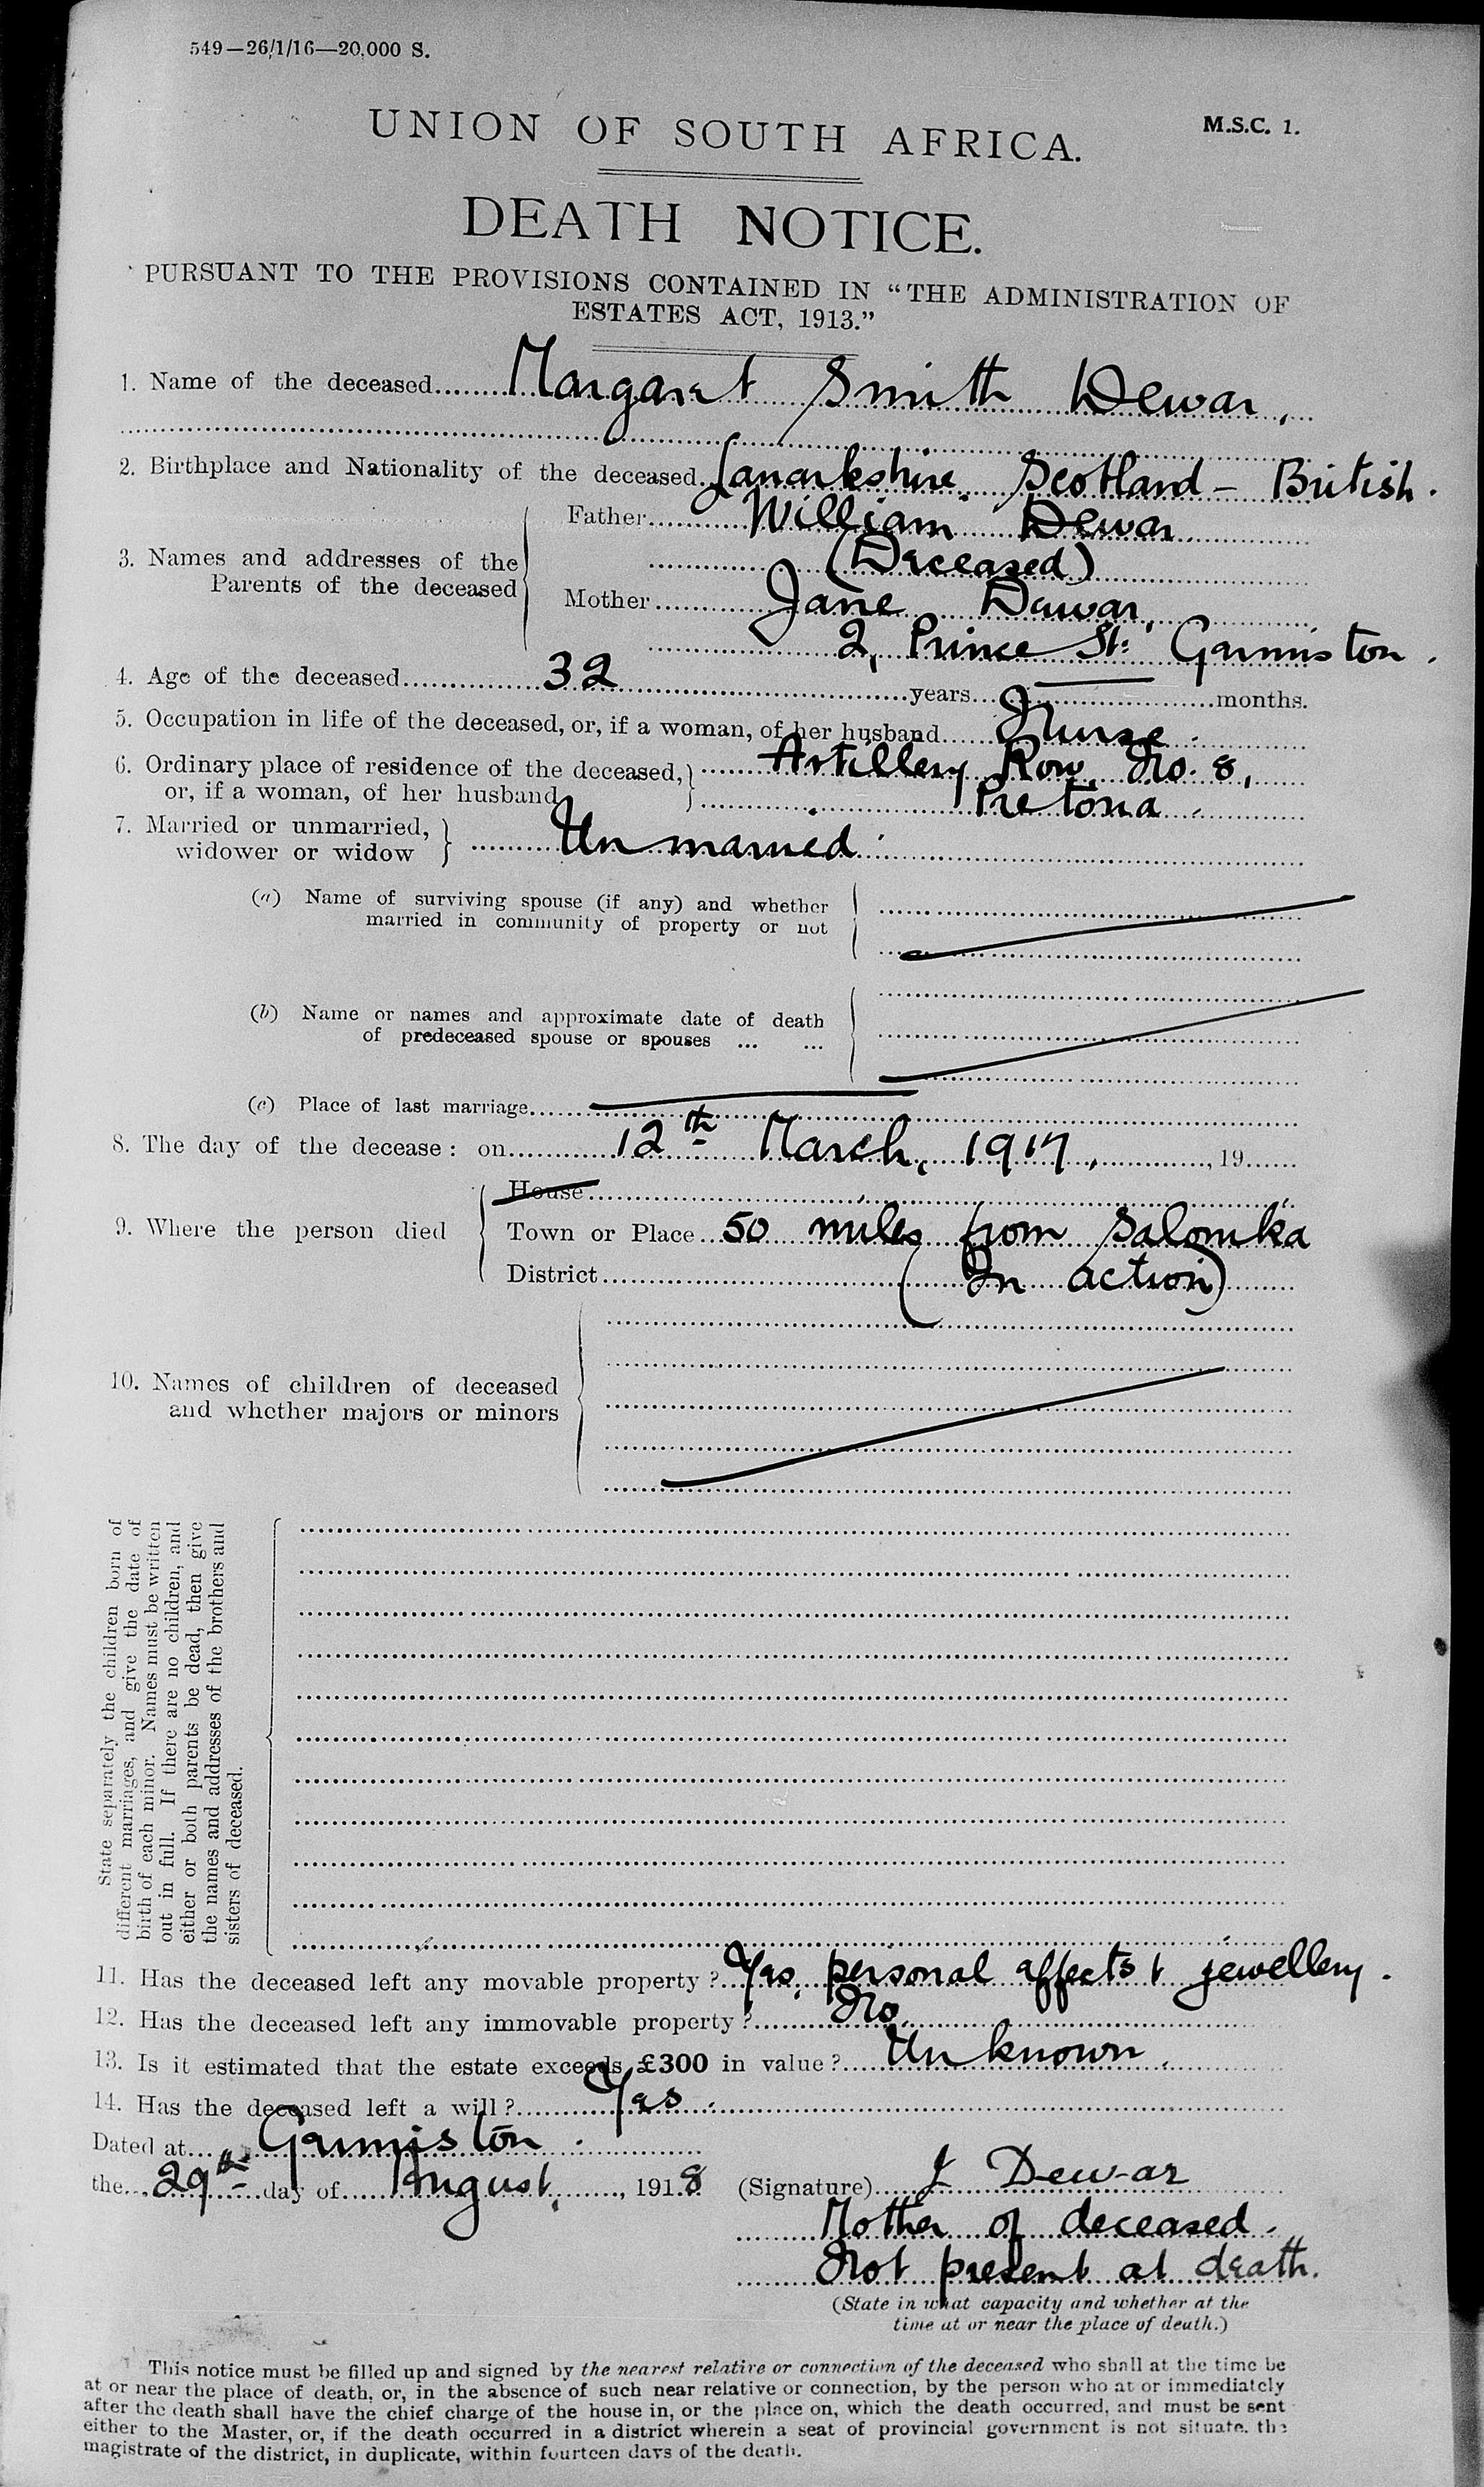 549—26/1/16—20,000 S.
M.S.C. 1.
UNION OF SOUTH AFRICA.
DEATH NOTICE.
PURSUANT TO THE PROVISIONS CONTAINED IN “THE ADMINISTRATION OF
ESTATES ACT, 1913.”
1. Name of the deceased Margaret Smith Dewar,
2. Birthplace and Nationality of the deceased Lanarkshire Scotland – British.
3. Names and addresses of the Parents of the deceased
Father William Dewar
(Deceased)
Mother Jane Dewar,
2, Prince St: Germiston.
4. Age of the deceased 32 years — months.
5. Occupation in life of the deceased, or, if a woman, of her husband Nurse.
6. Ordinary place of residence of the deceased, Artillery Row, No. 8,
or, if a woman, of her husband Pretoria.
7. Married or unmarried,
widower or widow Unmarried.
(a) Name of surviving spouse (if any) and whether
married in community of property or not
(b) Name or names and approximate date of death
of predeceased spouse or spouses ... ...
(c) Place of last marriage
8. The day of the decease: on 12th March, 1917, , 19
House
9. Where the person died Town or Place 50 miles from Salonika
District (In action)
10. Names of children of deceased
and whether majors or minors
State separately the children born of
different marriages, and give the date of
birth of each minor. Names must be written
out in full. If there are no children, and
either or both parents be dead, then give
the names and addresses of the brothers and
sisters of deceased.
11. Has the deceased left any movable property? Yes, personal effects & jewellery.
12. Has the deceased left any immovable property? No.
13. Is it estimated that the estate exceeds £300 in value? Unknown.
14. Has the deceased left a will? Yes.
Dated at Germiston.
the 29th day of August, , 1918 (Signature) J Dewar
Mother of deceased.
Not present at death.
(State in what capacity and whether at the
time at or near the place of death.)
This notice must be filled up and signed by the nearest relative or connection of the deceased who shall at the time be
at or near the place of death, or, in the absence of such near relative or connection, by the person who at or immediately
after the death shall have the chief charge of the house in, or the place on, which the death occurred, and must be sent
either to the Master, or, if the death occurred in a district wherein a seat of provincial government is not situate, the
magistrate of the district, in duplicate, within fourteen days of the death.